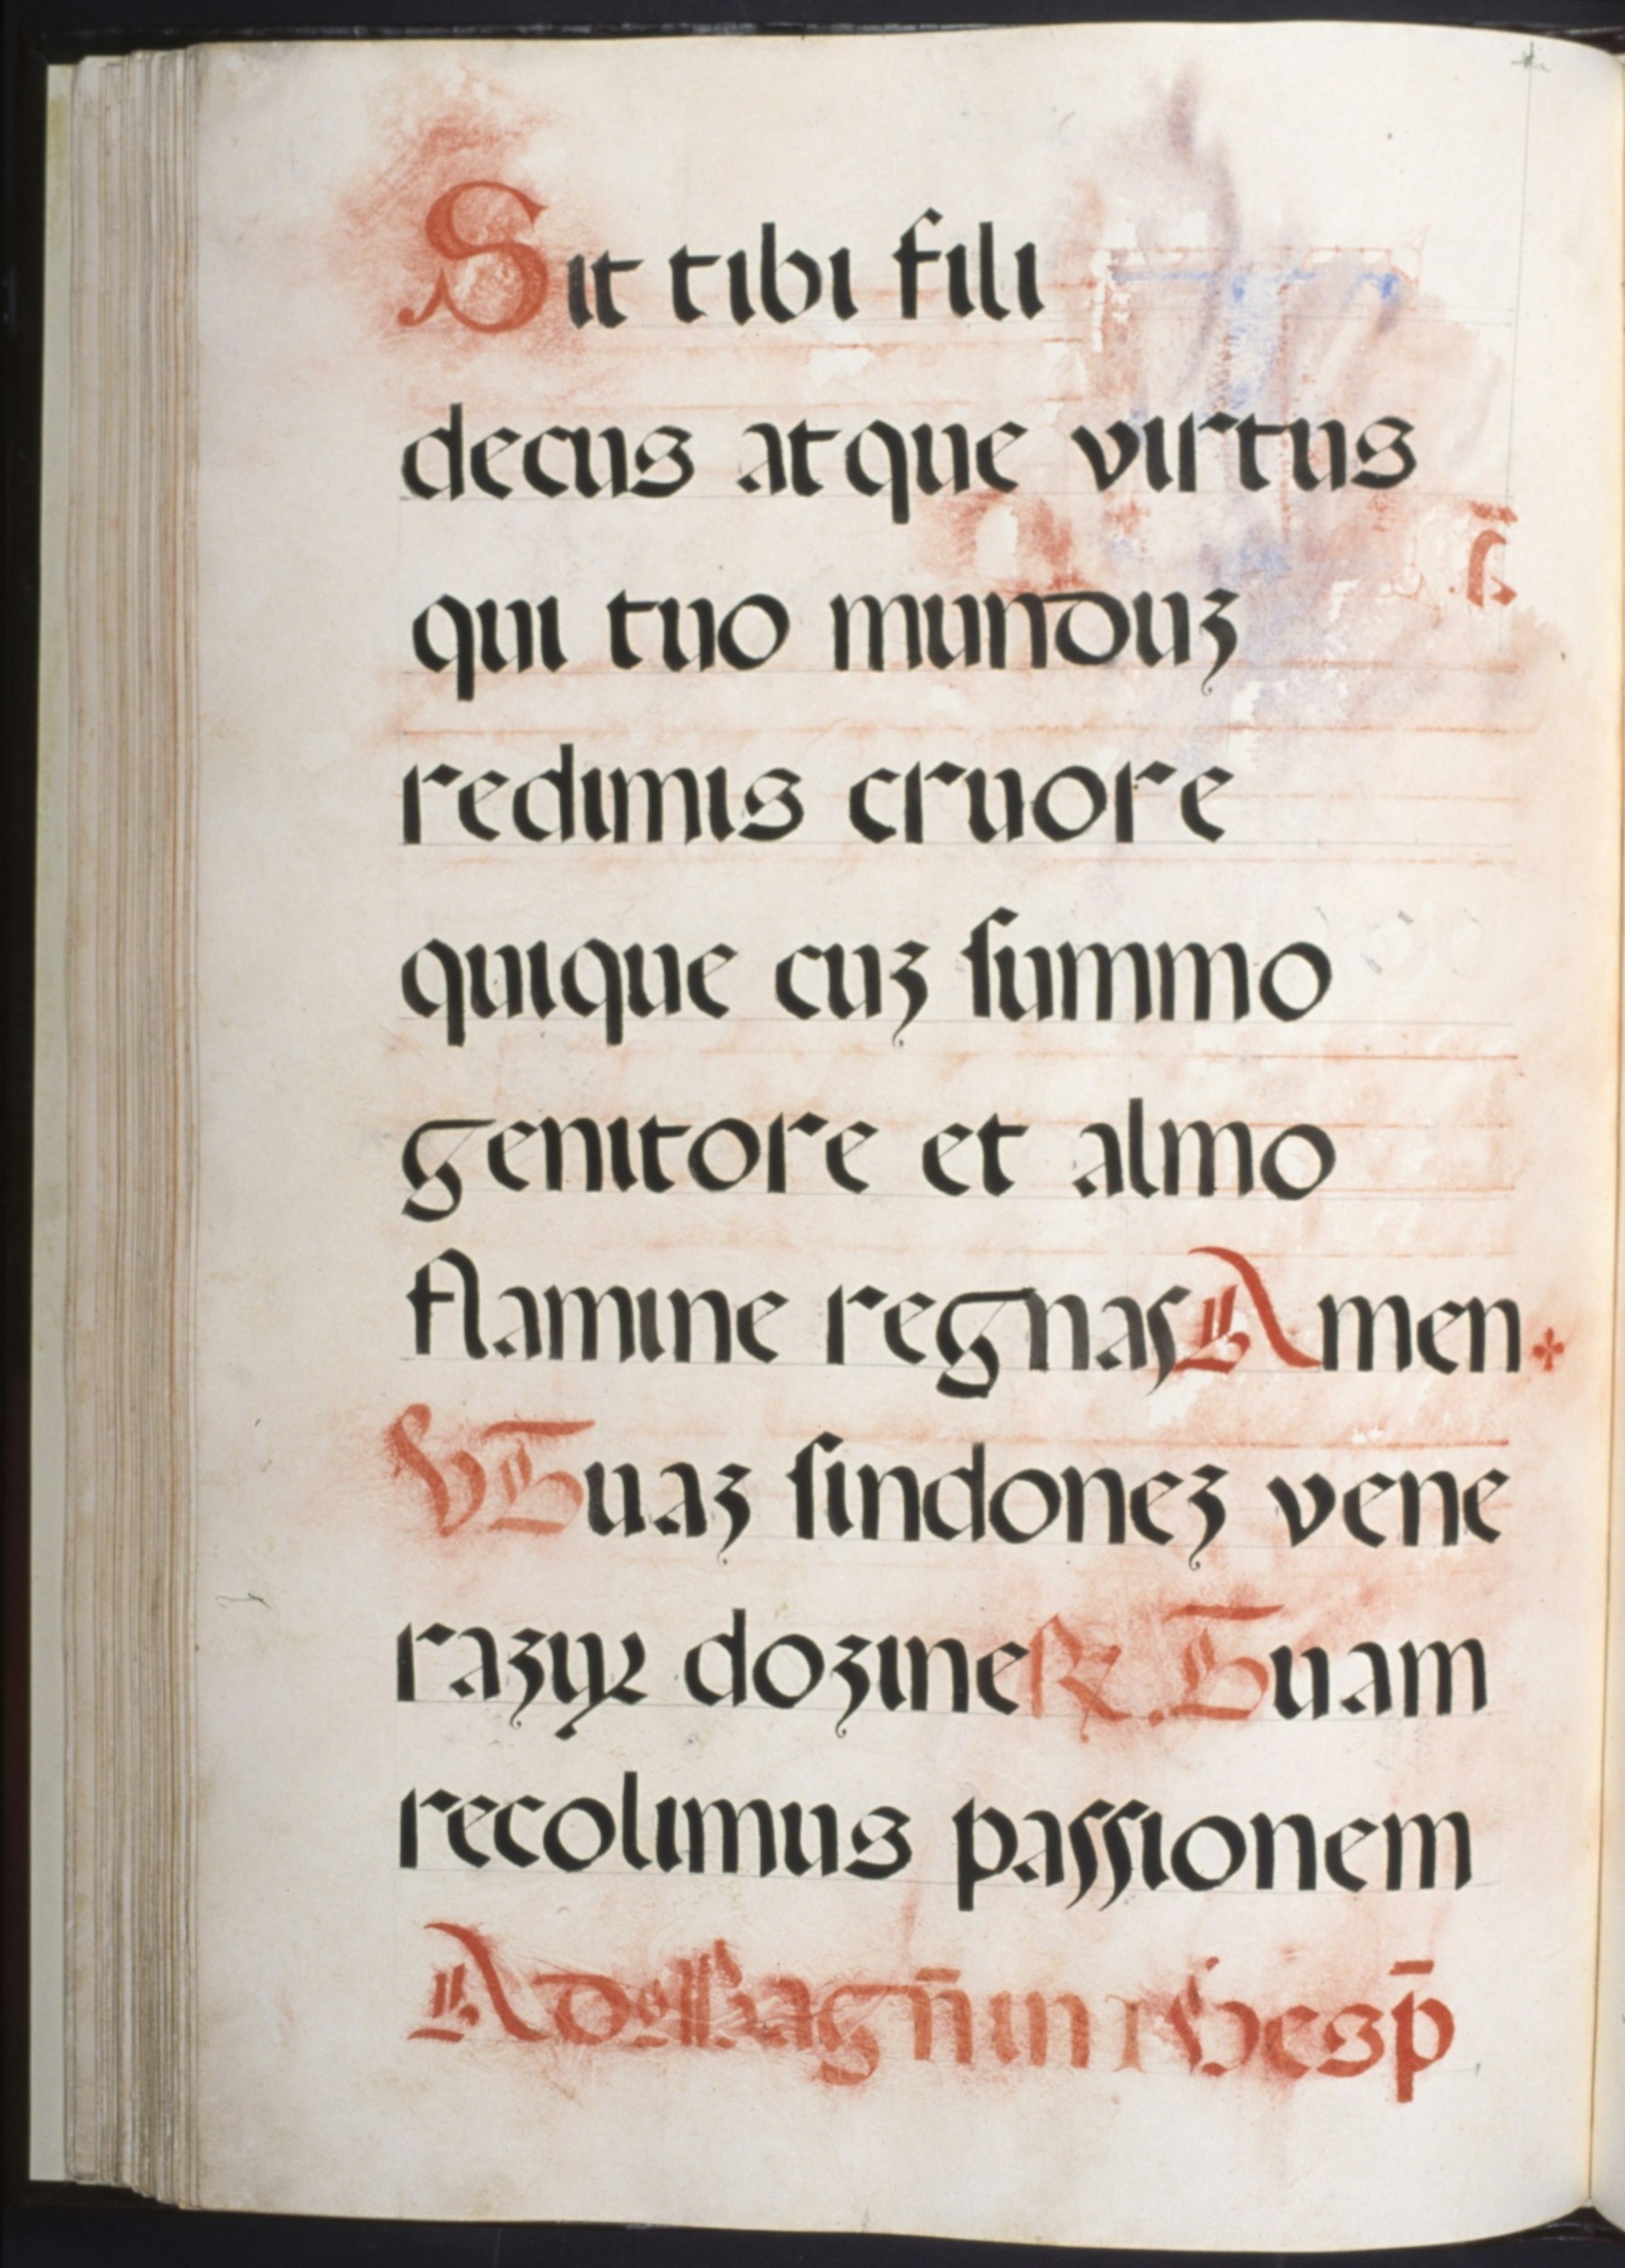 Sit tibi fili
decus atque virtus
qui tuo munduz
redimis cruore
quique cuz ſummo
genitore et almo
flamine regnas Amen
V Tuaz ſindonez vene
razꝰ dozine ℟. Tuam
recolimus paſſionem
Ad Magn̄ in Vesp̄